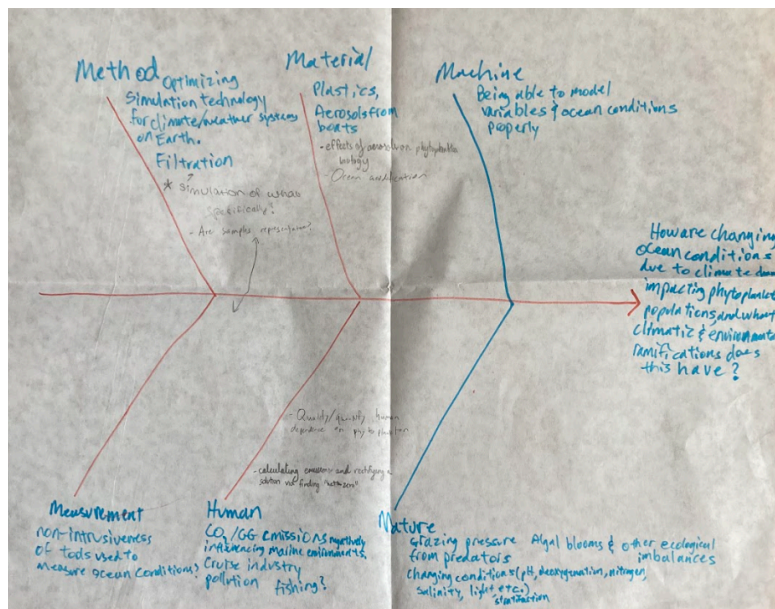 Method
Optimizing
Simulation technology
for climate/weather systems
on Earth.
Filtration
* Simulation of what
specifically?
- Are samples representative?
Material
Plastics,
Aerosols from
boats
- effects of aerosol on
biology
- Ocean acidification
Machine
Being able to model
variables & ocean conditions
properly
How are changing
ocean conditions
due to climate
impacting
populations and what
climatic & environmental
ramifications does
this have?
Measurement
non-intrusiveness
of tools used to
measure ocean conditions?
- Quality/quantity human
dependence on phytoplankton
- calculating emissions and rectifying a
solution via finding "net-zero"
Human
CO₂/GG emissions negatively
influencing marine environments,
Cruise industry
pollution fishing?
Nature
Grazing pressure
from predators
Algal blooms & other ecological
imbalances
changing conditions (pH, deoxygenation, nitrogen,
salinity, light etc.)
stratification